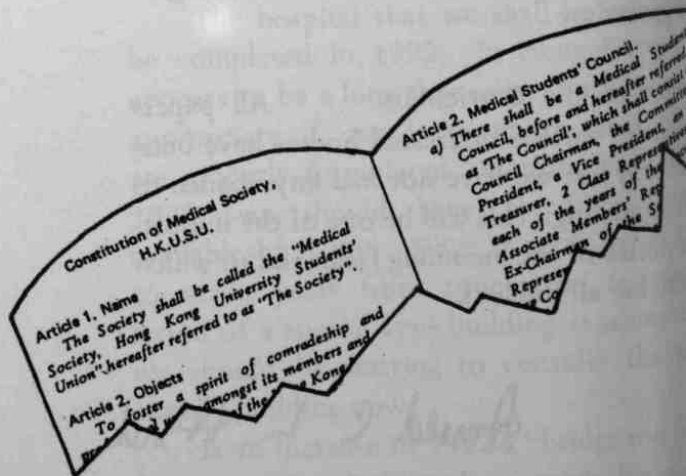 Constitution of Medical Society,
H.K.U.S.U.
Article 1. Name
The Society shall be called the "Medical
Society, Hong Kong University Students'
Union" hereafter referred to as "The Society".
Article 2. Objects
To foster a spirit of comradeship and
amongst its members and
of the Hong Kong
Article 2. Medical Students' Council.
a) There shall be a Medical Students
Council, before and hereafter referred
as 'The Council', which shall consist
Council Chairman, the Committee
President, a Vice President, an
Treasurer, 2 Class Represe
each of the years of the
Associate Members' Rep
Ex-Chairman of the S
Represent
Co